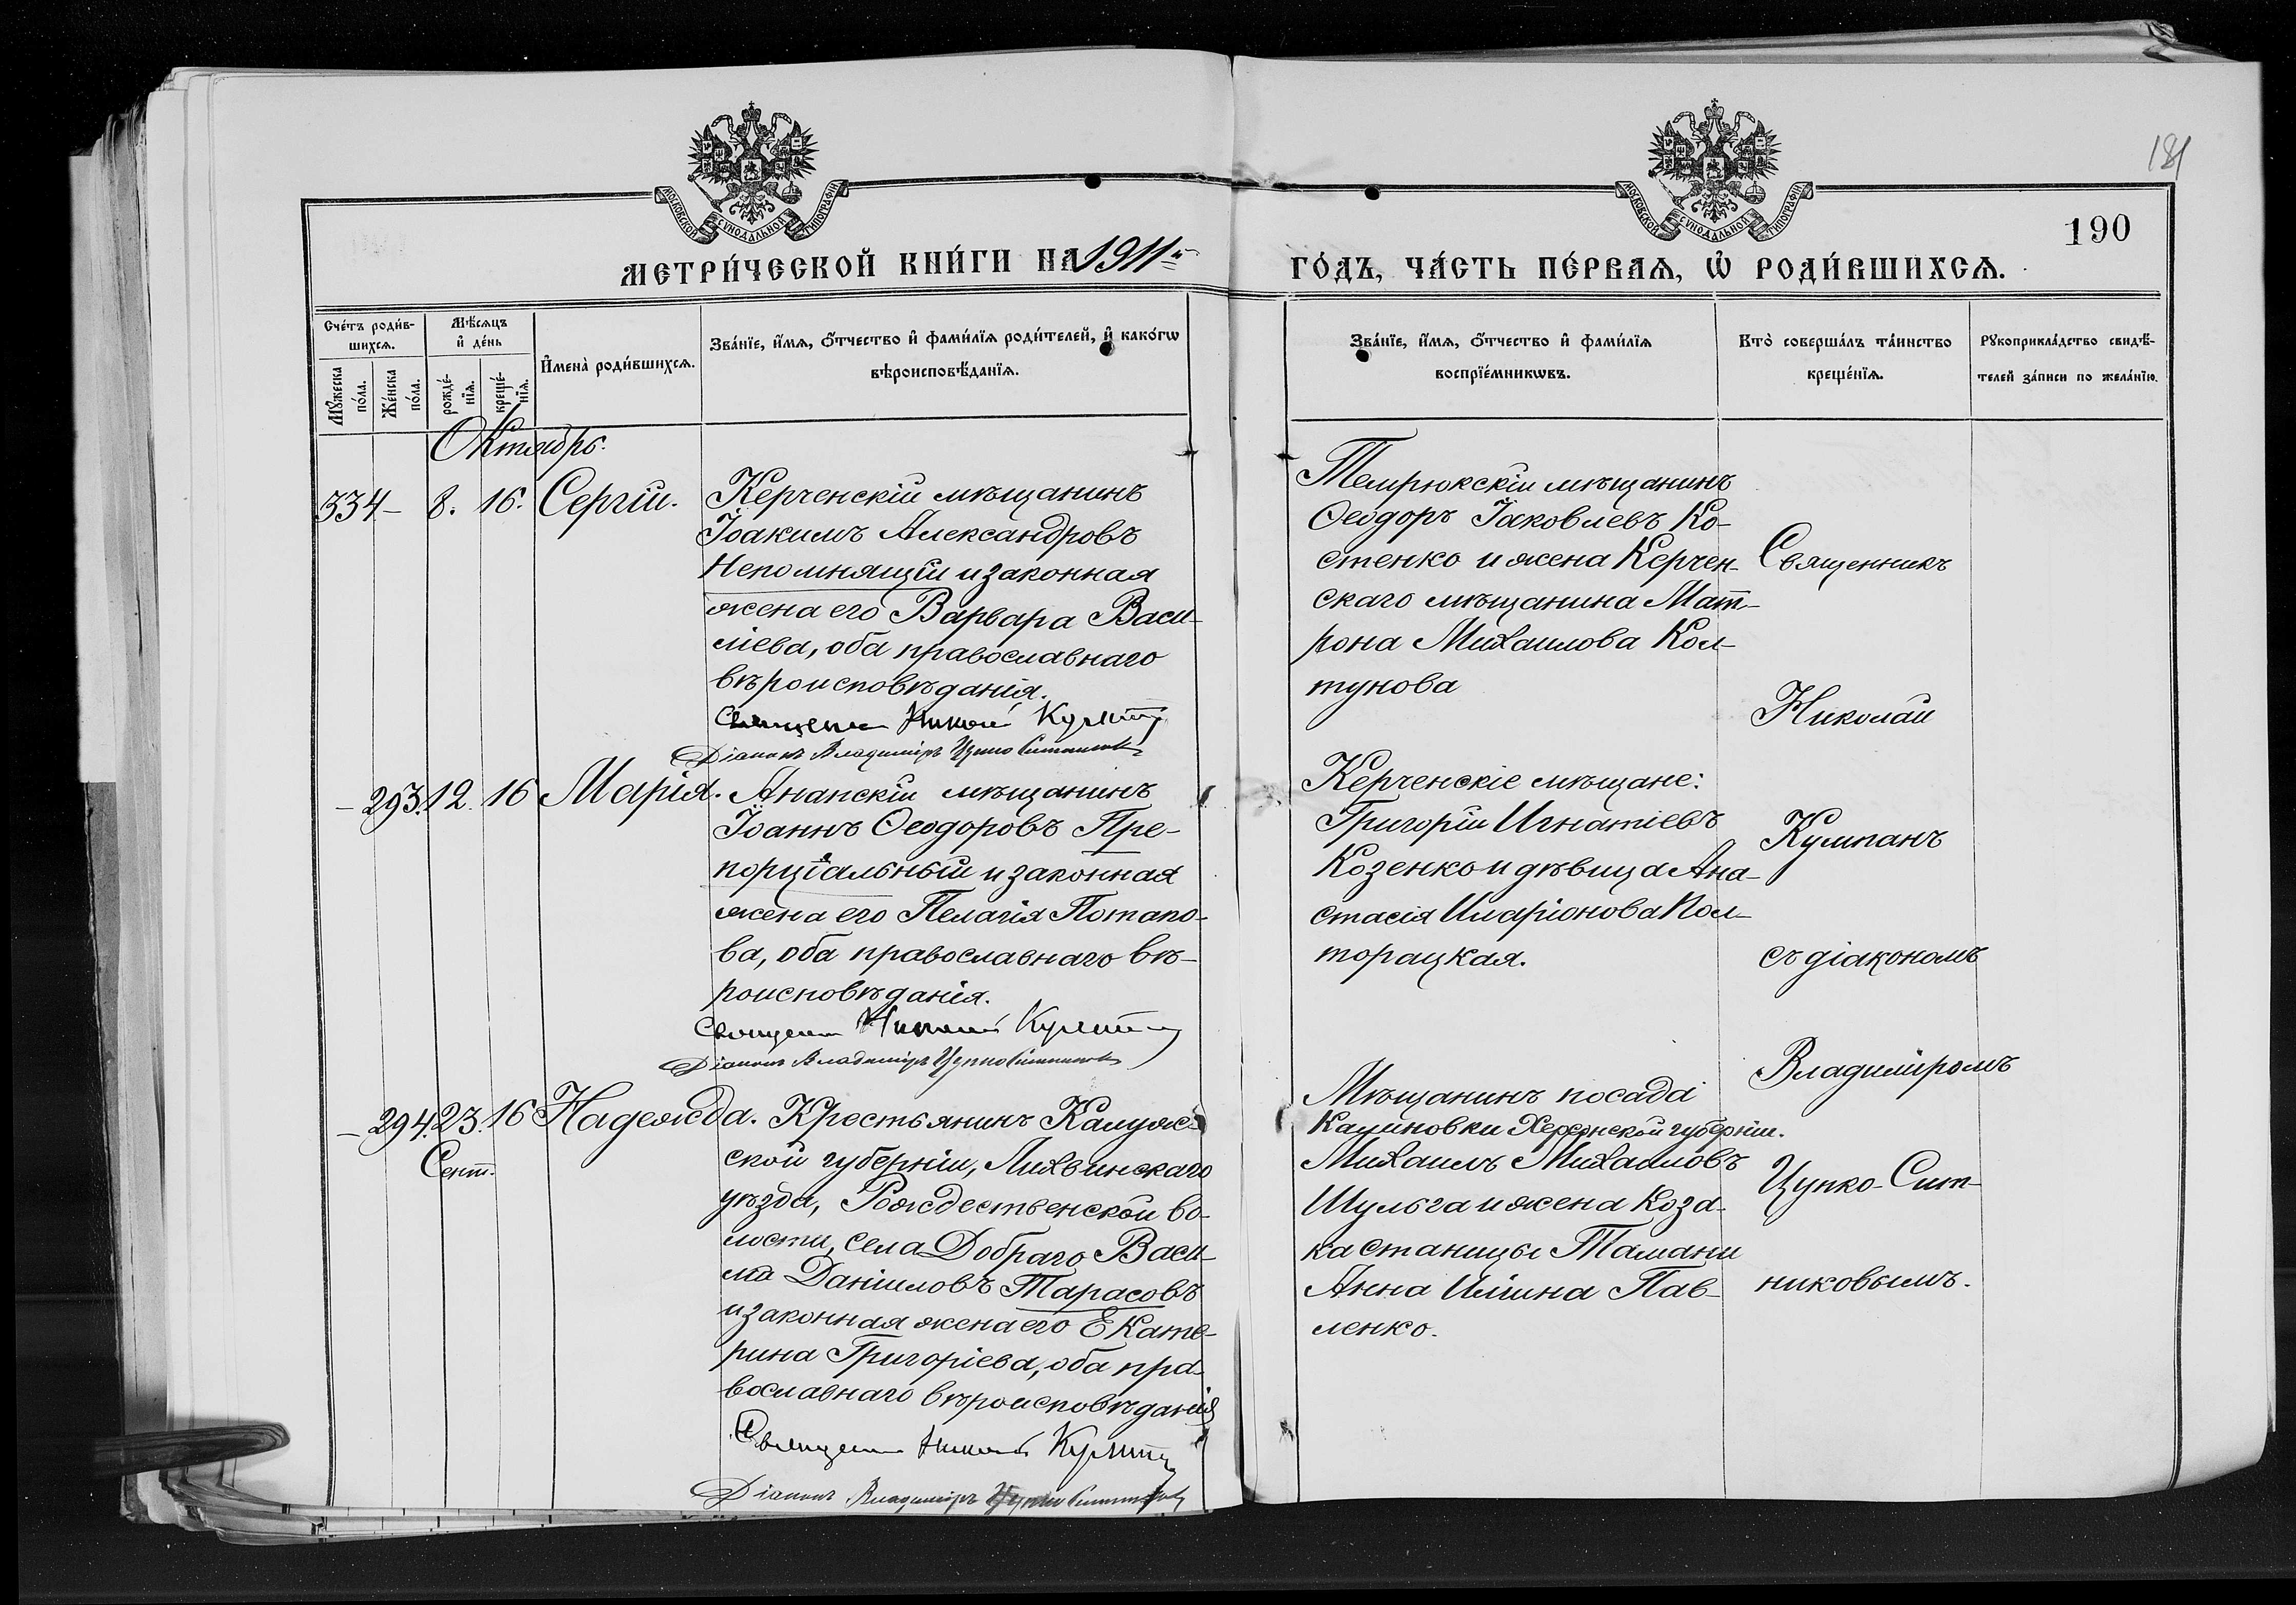 181
190
МОСКОВСКОЙ СѴНОДАЛЬНОЙ ТИПОГРАФІИ
МОСКОВСКОЙ СѴНОДАЛЬНОЙ ТИПОГРАФІИ
МЕТРИ́ЧЕСКОЙ КНИ́ГИ НА 1911 й
ГО́ДЪ, ЧА́СТЬ ПЕ́РВАѦ, Ѡ҆ РОДИ́ВШИХСѦ.
Сче́тъ роди́в-
шихсѧ.
Мѣ́сѧцъ
и҆ де́нь
И҆мена̀ роди́вшихсѧ.
Зва́нїе, и҆́мѧ, ѻ҆́тчество и҆ фами́лїѧ роди́телей, и҆ како́гѡ
вѣроисповѣ́данїѧ.
Мꙋ́жеска
по́ла.
Же́нска
по́ла.
рожде́-
нїѧ.
креще́-
нїѧ.
Зва́нїе, и҆́мѧ, ѻ҆́тчество и҆ фами́лїѧ
воспрїе́мникѡвъ.
Кто̀ соверша́лъ та́инство
креще́нїѧ.
Рꙋкоприкла́дство свидѣ́-
телей за́писи по жела́нїю.
Октябрь.
334 – 8. 16. Сергій.
Керченскій мѣщанинъ
Іоакимъ Александровъ
Непомнящій и законная
жена его Варвара Васи-
ліева, оба православнаго
вѣроисповѣданія.
Священникъ Николай Кумпанъ
Діаконъ Владиміръ Цупко Ситниковъ
Темрюкскій мѣщанинъ
Ѳеодоръ Іаковлевъ Ко-
стенко и жена Керчен-
скаго мѣщанина Мат-
рона Михаилова Кол-
тунова
– 293. 12. 16 Марія.
Анапскій мѣщанинъ
Іоаннъ Ѳеодоровъ Пре-
порціальный и законная
жена его Пелагія Потапо-
ва, оба православнаго вѣ-
роисповѣданія.
Священникъ Николай Кумпанъ
Діаконъ Владиміръ Цупко Ситниковъ
Керченскіе мѣщане:
Григорій Игнатіевъ
Козенко и дѣвица Ана-
стасія Иларіонова Пол-
торацкая.
– 294. 23. 16 Надежда.
Сент.
Крестьянинъ Калуж-
ской губерніи, Лихвинскаго
уѣзда, Рождественской во-
лости, села Добраго Васи-
лій Даніиловъ Тарасовъ
и законная жена его Екате-
рина Григоріева, оба пра-
вославнаго вѣроисповѣданія
Священникъ Николай Кумпанъ
Діаконъ Владиміръ Цупко Ситниковъ
Мѣщанинъ посада
Калиновки Херсонской губерніи.
Михаилъ Михаиловъ
Шульга и жена коза-
ка станицы Тамани
Анна Иліина Пав-
ленко.
Священникъ
Николай
Кумпанъ
съ діакономъ
Владиміромъ
Цупко-Сит-
никовымъ.